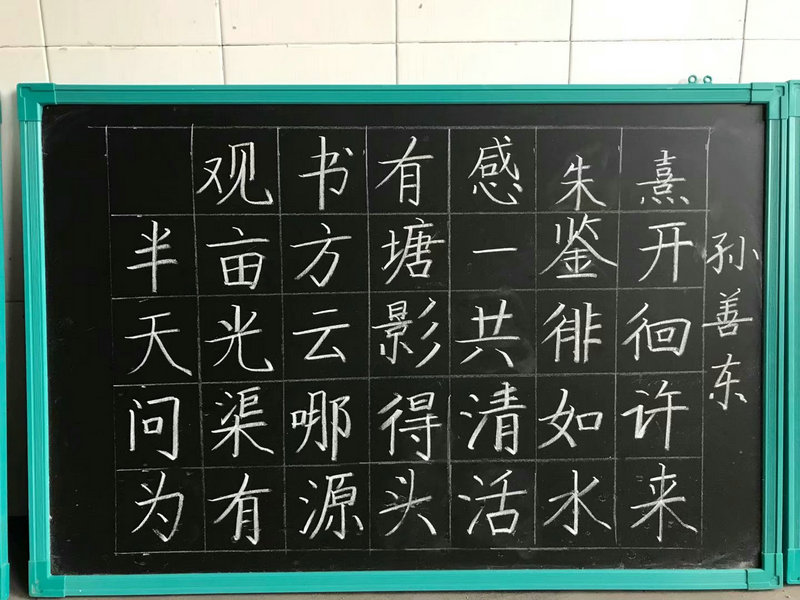 观书有感 朱熹
半亩方塘一鉴开
天光云影共徘徊
问渠哪得清如许
为有源头活水来
孙善东